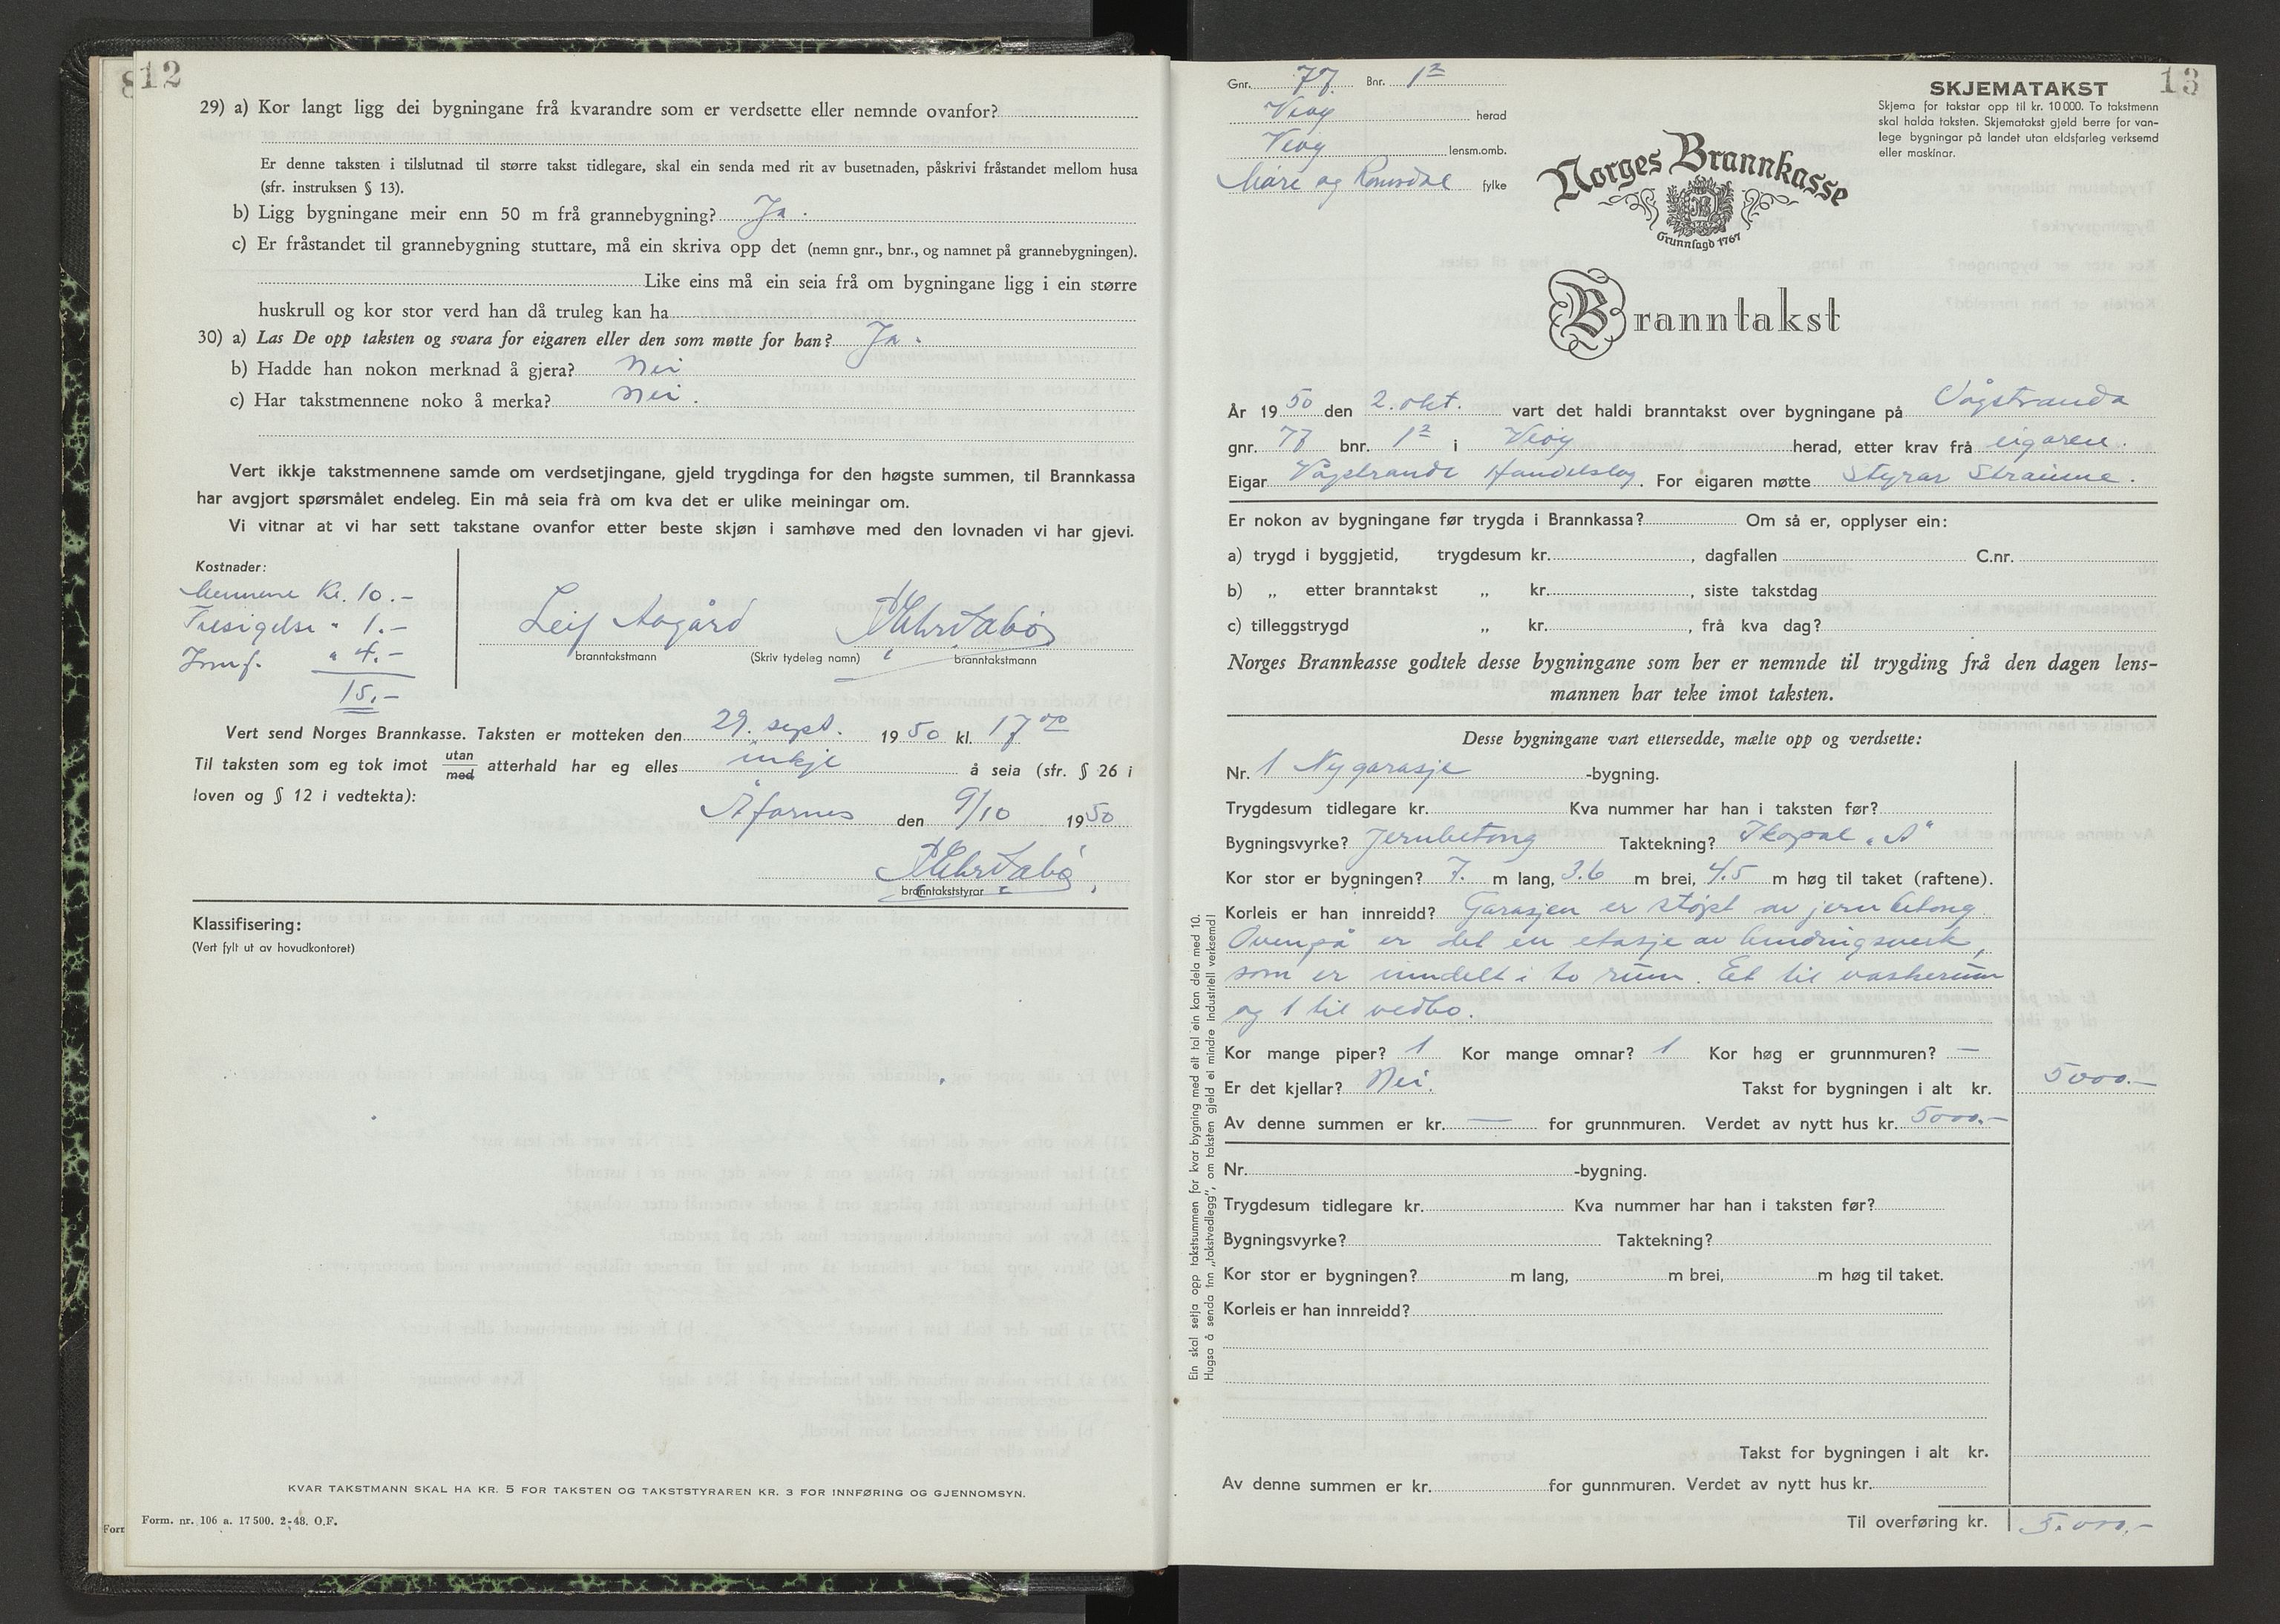 12
29) a) Kor langt ligg dei bygningane frå kvarandre som er verdsette eller nemnde ovanfor?
Er denne taksten i tilslutnad til større takst tidlegare, skal ein senda med rit av busetnaden, påskrivi fråstandet mellom husa
(sfr. instruksen § 13).
b) Ligg bygningane meir enn 50 m frå grannebygning? Ja.
c) Er fråstandet til grannebygning stuttare, må ein skriva opp det (nemn gnr., bnr., og namnet på grannebygningen).
Like eins må ein seia frå om bygningane ligg i ein større
huskrull og kor stor verd han då truleg kan ha
30) a) Las De opp taksten og svara for eigaren eller den som møtte for han? Ja.
b) Hadde han nokon merknad å gjera? Nei
c) Har takstmennene noko å merka? Nei.
Vert ikkje takstmennene samde om verdsetjingane, gjeld trygdinga for den høgste summen, til Brannkassa
har avgjort spørsmålet endeleg. Ein må seia frå om kva det er ulike meiningar om.
Vi vitnar at vi har sett takstane ovanfor etter beste skjøn i samhøve med den lovnaden vi har gjevi.
Kostnader:
Mennene Kr. 10.-
" 1.-
Innf. " 4.-
15.-
Leif Aagård
branntakstmann (Skriv tydeleg namn) branntakstmann
Vert send Norges Brannkasse. Taksten er motteken den 29. sept. 1950 kl. 17 00
Til taksten som eg tok imot utan med atterhald har eg elles inkje å seia (sfr. § 26 i
loven og § 12 i vedtekta):
Åfarnes den 9/10 1950
branntakststyrar
Klassifisering:
(Vert fylt ut av hovudkontoret)
KVAR TAKSTMANN SKAL HA KR. 5 FOR TAKSTEN OG TAKSTSTYRAREN KR. 3 FOR INNFØRING OG GJENNOMSYN.
Form. nr. 106 a. 17500. 2-48. O.F.
13
Gnr. 77 Bnr. 1 2
Veøy herad
Veøy lensm.omb.
Møre og Romsdal fylke
SKJEMATAKST
Skjema for takstar opp til kr. 10 000. To takstmenn
skal halda taksten. Skjematakst gjeld berre for van-
lege bygningar på landet utan eldsfarleg verksemd
eller maskinar.
Norges Brannkasse
Grunnlagd 1767
Branntakst
År 1950 den 2. okt. vart det haldi branntakst over bygningane på Vågstranda
gnr. 77 bnr. 1 2 i Veøy herad, etter krav frå eigaren.
Eigar Vågstranda Handelslag. For eigaren møtte Styrar Straume.
Er nokon av bygningane før trygda i Brannkassa? Om så er, opplyser ein:
a) trygd i byggjetid, trygdesum kr. , dagfallen C.nr.
b) „ etter branntakst „ kr. , siste takstdag
c) tilleggstrygd „ kr. , frå kva dag?
Norges Brannkasse godtek desse bygningane som her er nemnde til trygding frå den dagen lens-
mannen har teke imot taksten.
Desse bygningane vart ettersedde, mælte opp og verdsette:
Nr. 1 Ny garasje -bygning.
Trygdesum tidlegare kr. Kva nummer har han i taksten før?
Bygningsvyrke? Jernbetong Taktekning? Ikopal „A"
Kor stor er bygningen? 7. m lang, 3.6 m brei, 4.5 m høg til taket (raftene).
Korleis er han innreidd? Garasjen er støpt av jernbetong.
Ovenpå er det en etasje av bindingsverk,
som er inndelt i to rum. Et til vaskerum
og 1 til vedbo.
Kor mange piper? 1 Kor mange omnar? 1 Kor høg er grunnmuren? —
Er det kjellar? Nei. Takst for bygningen i alt kr. 5000.—
Av denne summen er kr. — for grunnmuren. Verdet av nytt hus kr. 5000.—
Nr. -bygning.
Trygdesum tidlegare kr. Kva nummer har han i taksten før?
Bygningsvyrke? Taktekning?
Kor stor er bygningen? m lang, m brei, m høg til taket.
Korleis er han innreidd?
Takst for bygningen i alt kr.
Av denne summen er kr. for gunnmuren. Verdet av nytt hus kr.
Til overføring kr. 5.000.-
Ein skal setja opp takstsummen for kvar bygning med eit tal ein kan dela med 10.
Hugsa å senda inn „takstvedlegg", om taksten gjeld ei mindre industriell verksemd!